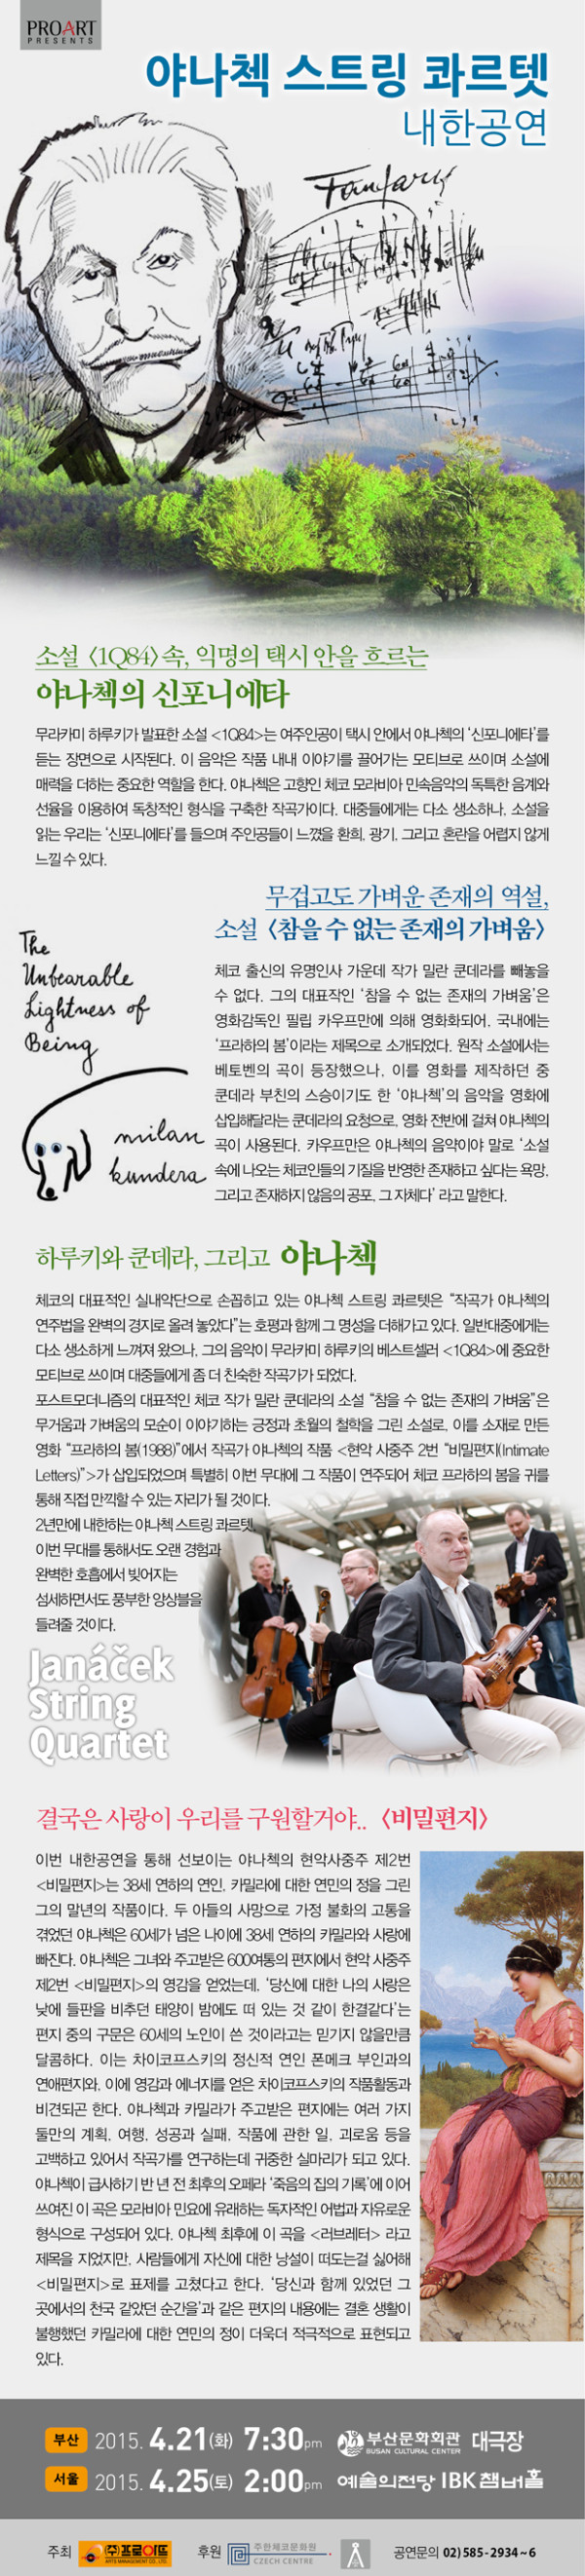 PROART
PRESENTS
야나첵 스트링 콰르텟
내한공연
Fanfary
소설 <1Q84>속, 익명의 택시 안을 흐르는
야나첵의 신포니에타
무라카미 하루키가 발표한 소설 <1Q84>는 여주인공이 택시 안에서 야나첵의 ‘신포니에타’를
듣는 장면으로 시작된다. 이 음악은 작품 내내 이야기를 끌어가는 모티브로 쓰이며 소설에
매력을 더하는 중요한 역할을 한다. 야나첵은 고향인 체코 모라비아 민속음악의 독특한 음계와
선율을 이용하여 독창적인 형식을 구축한 작곡가이다. 대중들에게는 다소 생소하나, 소설을
읽는 우리는 ‘신포니에타’를 들으며 주인공들이 느꼈을 환희, 광기, 그리고 혼란을 어렵지 않게
느낄 수 있다.
무겁고도 가벼운 존재의 역설,
소설 <참을 수 없는 존재의 가벼움>
The
Unbearable
Lightness of
Being
milan
kundera
체코 출신의 유명인사 가운데 작가 밀란 쿤데라를 빼놓을
수 없다. 그의 대표작인 ‘참을 수 없는 존재의 가벼움’은
영화감독인 필립 카우프만에 의해 영화화되어, 국내에는
‘프라하의 봄’이라는 제목으로 소개되었다. 원작 소설에서는
베토벤의 곡이 등장했으나, 이를 영화를 제작하던 중
쿤데라 부친의 스승이기도 한 ‘야나첵’의 음악을 영화에
삽입해달라는 쿤데라의 요청으로, 영화 전반에 걸쳐 야나첵의
곡이 사용된다. 카우프만은 야나첵의 음악이야 말로 ‘소설
속에 나오는 체코인들의 기질을 반영한 존재하고 싶다는 욕망,
그리고 존재하지 않음의 공포, 그 자체다’ 라고 말한다.
하루키와 쿤데라, 그리고 야나첵
체코의 대표적인 실내악단으로 손꼽히고 있는 야나첵 스트링 콰르텟은 “작곡가 야나첵의
연주법을 완벽의 경지로 올려 놓았다”는 호평과 함께 그 명성을 더해가고 있다. 일반대중에게는
다소 생소하게 느껴져 왔으나, 그의 음악이 무라카미 하루키의 베스트셀러 <1Q84>에 중요한
모티브로 쓰이며 대중들에게 좀 더 친숙한 작곡가가 되었다.
포스트모더니즘의 대표적인 체코 작가 밀란 쿤데라의 소설 “참을 수 없는 존재의 가벼움”은
무거움과 가벼움의 모순이 이야기하는 긍정과 초월의 철학을 그린 소설로, 이를 소재로 만든
영화 “프라하의 봄(1988)”에서 작곡가 야나첵의 작품 <현악 사중주 2번 “비밀편지(Intimate
Letters)”>가 삽입되었으며 특별히 이번 무대에 그 작품이 연주되어 체코 프라하의 봄을 귀를
통해 직접 만끽할 수 있는 자리가 될 것이다.
2년만에 내한하는 야나첵 스트링 콰르텟,
이번 무대를 통해서도 오랜 경험과
완벽한 호흡에서 빚어지는
섬세하면서도 풍부한 앙상블을
들려줄 것이다.
Janáček
String
Quartet
결국은 사랑이 우리를 구원할거야.. <비밀편지>
이번 내한공연을 통해 선보이는 야나첵의 현악사중주 제2번
<비밀편지>는 38세 연하의 연인, 카밀라에 대한 연민의 정을 그린
그의 말년의 작품이다. 두 아들의 사망으로 가정 불화의 고통을
겪었던 야나첵은 60세가 넘은 나이에 38세 연하의 카밀라와 사랑에
빠진다. 야나첵은 그녀와 주고받은 600여통의 편지에서 현악 사중주
제2번 <비밀편지>의 영감을 얻었는데, ‘당신에 대한 나의 사랑은
낮에 들판을 비추던 태양이 밤에도 떠 있는 것 같이 한결같다’는
편지 중의 구문은 60세의 노인이 쓴 것이라고는 믿기지 않을만큼
달콤하다. 이는 차이코프스키의 정신적 연인 폰메크 부인과의
연애편지와, 이에 영감과 에너지를 얻은 차이코프스키의 작품활동과
비견되곤 한다. 야나첵과 카밀라가 주고받은 편지에는 여러 가지
둘만의 계획, 여행, 성공과 실패, 작품에 관한 일, 괴로움 등을
고백하고 있어서 작곡가를 연구하는데 귀중한 실마리가 되고 있다.
야나첵이 급사하기 반 년 전 최후의 오페라 ‘죽음의 집의 기록’에 이어
쓰여진 이 곡은 모라비아 민요에 유래하는 독자적인 어법과 자유로운
형식으로 구성되어 있다. 야나첵 최후에 이 곡을 <러브레터> 라고
제목을 지었지만, 사람들에게 자신에 대한 낭설이 떠도는걸 싫어해
<비밀편지>로 표제를 고쳤다고 한다. ‘당신과 함께 있었던 그
곳에서의 천국 같았던 순간을’과 같은 편지의 내용에는 결혼 생활이
불행했던 카밀라에 대한 연민의 정이 더욱더 적극적으로 표현되고
있다.
부산 2015. 4.21(화) 7:30pm 부산문화회관 대극장
BUSAN CULTURAL CENTER
서울 2015. 4.25(토) 2:00pm 예술의전당 IBK챔버홀
주최 (주)프로아트 후원 주한체코문화원 공연문의 02)585-2934~6
ARTS MANAGEMENT CO., LTD. CZECH CENTRE